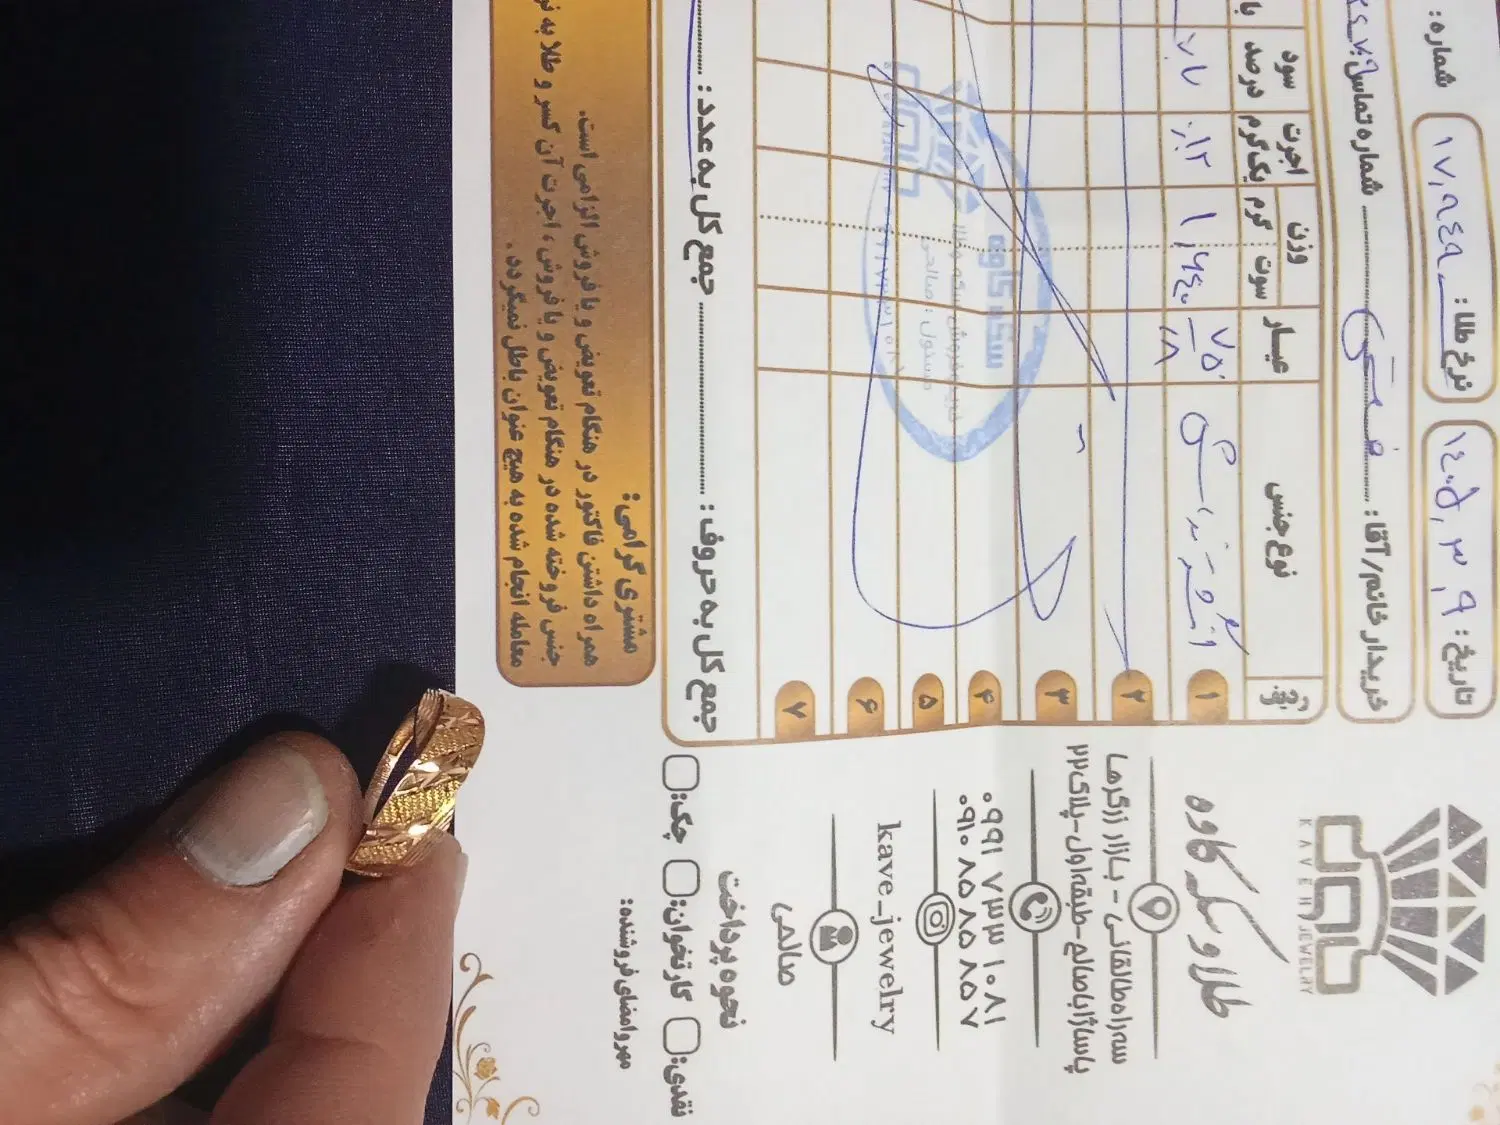 KAVEH JEWELRY
طلا و سکه کاوه
سه راه طالقانی - بازار زرگرها
پاساژ اباصالح - طبقه اول - پلاک ۲۲
۰۹۹۱ ۷۳۳ ۱۰۸۱
۰۹۱۰ ۸۵ ۸۵ ۸۵۷
kave_jewelry
صالحی
تاریخ: ۱۴۰۵,۳,۹
نرخ طلا: ۱۷,۹۴۹
شماره:
خریدار خانم/آقا:
شماره تماس:
نوع جنس
عیار
وزن
سوت
گرم
اجرت
یک گرم
سود
درصد
با
۱
۷۵۰
۱۸
۱,۶۴۰
٪۱۲
٪۷
۲
۳
۴
۵
۶
۷
سکه کاوه
مسئول: صالحی
جمع کل به حروف:
جمع کل به عدد:
مشتری گرامی:
همراه داشتن فاکتور در هنگام تعویض و یا فروش الزامی است.
جنس فروخته شده در هنگام تعویض و یا فروش، اجرت آن کسر و طلا به
معامله انجام شده به هیچ عنوان باطل نمیگردد.
نحوه پرداخت
نقدی:
کارتخوان:
چک:
مهر و امضای فروشنده: